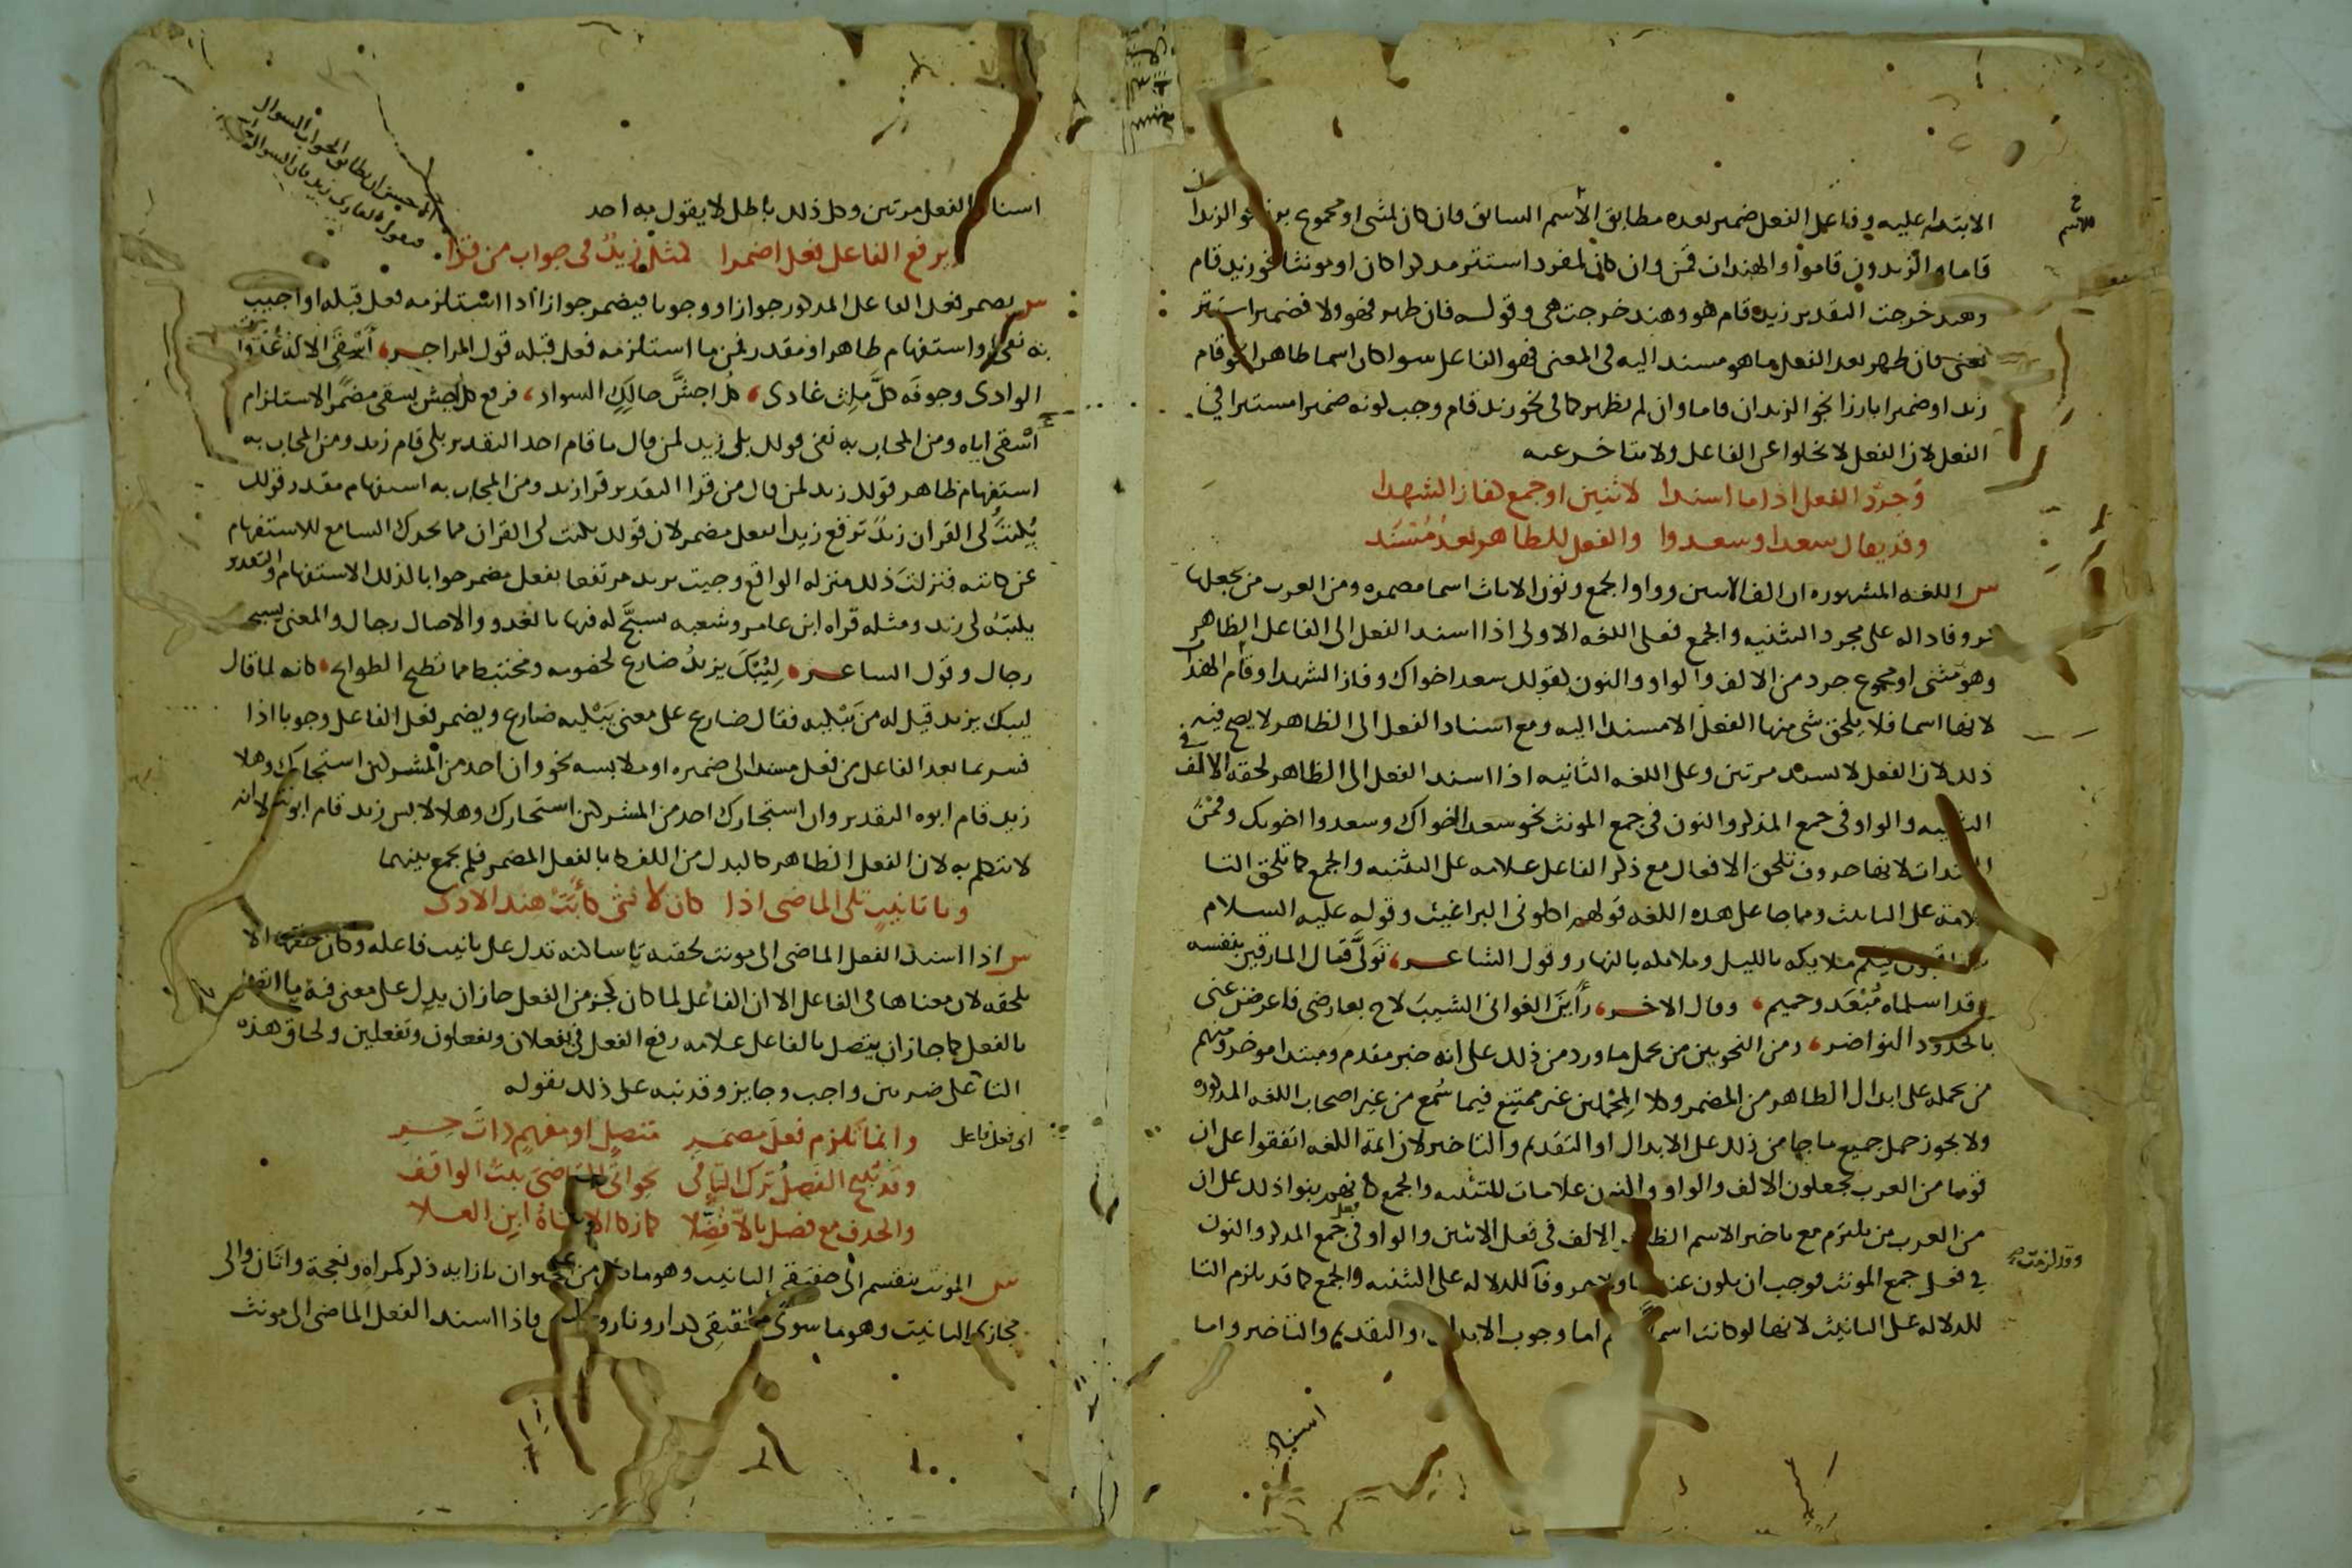 الابتدا عليه وفاعل الفعل ضمير بعده مطابق الاسم السابق فان كان لمثنى او مجموع برز نحو الزيدان
قاما والزيدون قاموا والهندات قمن وان كان لمفرد استتر مذكرا كان او مونثا نحو زيد قام
وهند خرجت التقدير زيد قام هو وهند خرجت هى وقوله فان ظهر فهو ولا فضمير استتر
يعنى فان ظهر بعد الفعل ما هو مسند اليه فى المعنى فهو الفاعل سوا كان اسما ظاهرا نحو قام
زيد او ضميرا بارزا نحو الزيدان قاما وان لم يظهر كما فى نحو زيد قام وجب كونه ضميرا مستترا فى
الفعل لان الفعل لا يخلوا عن الفاعل ولا يتاخر عنه
وجرد الفعل اذا ما اسندا لاثنين او جمع كفاز الشهدا
وقد يقال سعدا وسعدوا والفعل للظاهر بعد مسند
س اللغه المشهوره ان الف الاثنين وواو الجمع ونون الاناث اسما مضمره ومن العرب من يجعلها
حروفا داله على مجرد التثنيه والجمع فعلى اللغه الاولى اذا اسند الفعل الى الفاعل الظاهر
وهو مثنى او مجموع جرد من الالف والواو والنون كقولك سعد اخواك وفاز الشهدا وقام الهندات
لانها اسما فلا يلحق شى منها الفعل الا مسندا اليه ومع اسناد الفعل الى الظاهر لا يصح فيه
ذلك لان الفعل لا يسند مرتين وعلى اللغه الثانيه اذا اسند الفعل الى الظاهر لحقه الالف فى
التثنيه والواو فى جمع المذكر والنون فى جمع المونث نحو سعدا اخواك وسعدوا اخوتك وقمن
الهندات لانها حروف تلحق الافعال مع ذكر الفاعل علامه على التثنيه والجمع كما تلحق التا
علامة على التانيث ومما جا على هذه اللغه قولهم اكلونى البراغيث وقوله عليه السلام
يتعاقبون فيكم ملايكه بالليل وملايكه بالنهار وقول الشاعر، تولى قتال المارقين بنفسه
وقد اسلماه مبعد وحميم، وقال الاخر، راين الغوانى الشيب لاح بعارضى فاعرضن عنى
بالخدود النواضر، ومن النحويين من يحمل ما ورد من ذلك على انه خبر مقدم ومبتدا موخر ومنهم
من يحمله على ابدال الظاهر من المضمر وكلا المحملين غير ممتنع فيما سمع من غير اصحاب اللغه المذكوره
ولا يجوز حمل جميع ما جا من ذلك على الابدال او التقديم والتاخير لان ائمة اللغه اتفقوا على ان
قوما من العرب يجعلون الالف والواو والنون علامات للتثنيه والجمع كانهم بنوا ذلك على ان
من العرب من يلتزم مع تاخير الاسم الظاهر الالف فى فعل الاثنين والواو فى فعل جمع المذكر والنون
فى فعل جمع المونث فوجب ان يكون عند هاولا حروفا للدلاله على التثنيه والجمع كما قد يلزم التا
للدلاله على التانيث لانها لو كانت اسما اما وجوب الابدال او التقديم والتاخير واما
للاسم
وقد لزمت
اسناد
اسناد الفعل مرتين وكل ذلك باطل لا يقول به احد
ويرفع الفاعل فعل اضمرا كمثل زيد فى جواب من قرا
س يضمر فعل الفاعل المذكور جوازا ووجوبا فيضمر جوازا اذا استلزمه فعل قبله او اجيب
به نفى او استفهام ظاهر او مقدر فمن ما استلزمه فعل قبله قول الراجز، اسقى الاله عدوات
الوادى وجوفه كل ملث غادى، كل اجش حالك السواد، فرفع كل اجش بسقى مضمرا لاستلزام
اسقى اياه ومن المجاب به نفى قولك بلى زيد لمن قال ما قام احد التقدير بلى قام زيد ومن المجاب به
استفهام ظاهر قولك زيد لمن قال من قرا التقدير قرا زيد ومن المجاب به استفهام مقدر قولك
يكتب لى القران زيد ترفع زيد بفعل مضمر لان قولك يكتب لى القران مما يحرك السامع للاستفهام
عن كاتبه فنزلت ذلك منزله الواقع وجيت بزيد مرتفعا بفعل مضمر جوابا لذلك الاستفهام والتقدير
يكتبه لى زيد ومثله قراه ابن عامر وشعبه يسبح له فيها بالغدو والاصال رجال والمعنى يسبح
رجال وقول الشاعر، ليبك يزيد ضارع لخصومه ومختبط مما تطيح الطوايح، كانه لما قال
ليبك يزيد قيل له من يبكيه فقال ضارع على معنى يبكيه ضارع ويضمر فعل الفاعل وجوبا اذا
فسر بما بعد الفاعل من فعل مسند الى ضميره او ملابسه نحو وان احد من المشركين استجارك وهلا
زيد قام ابوه التقدير وان استجارك احد من المشركين استجارك وهلا لابس زيد قام ابوه الا انه
لا يتكلم به لان الفعل الظاهر كالبدل من اللفظ بالفعل المضمر فلم يجمع بينهما
وتا تانيث تلى الماضى اذا كان لانثى كابت هند الاذى
س اذا اسند الفعل الماضى الى مونث لحقته تا ساكنه تدل على تانيث فاعله وكان حقها الا
تلحقه لان معناها فى الفاعل الا ان الفاعل لما كان كجزء من الفعل جاز ان يدل على معنى فيه ما اتصل
بالفعل كما جاز ان يتصل بالفاعل علامه رفع الفعل فى يفعلان ويفعلون وتفعلين ولحاق هذه
التا على ضربين واجب وجايز وقد نبه على ذلك بقوله
وانما تلزم فعل مضمر متصل او مفهم ذات حر
اى فعل فاعل
وقد يبيح الفصل ترك التا فى نحو اتى القاضى بنت الواقف
والحذف مع فصل بالا فضلا كما زكا الا فتاة ابن العلا
س المونث ينقسم الى حقيقى التانيث وهو ما كان من الحيوان بازايه ذكر كمراه ونعجة واتان والى
مجازى التانيث وهو ما سوى الحقيقى كدار ونار وشمس فاذا اسند الفعل الماضى الى مونث